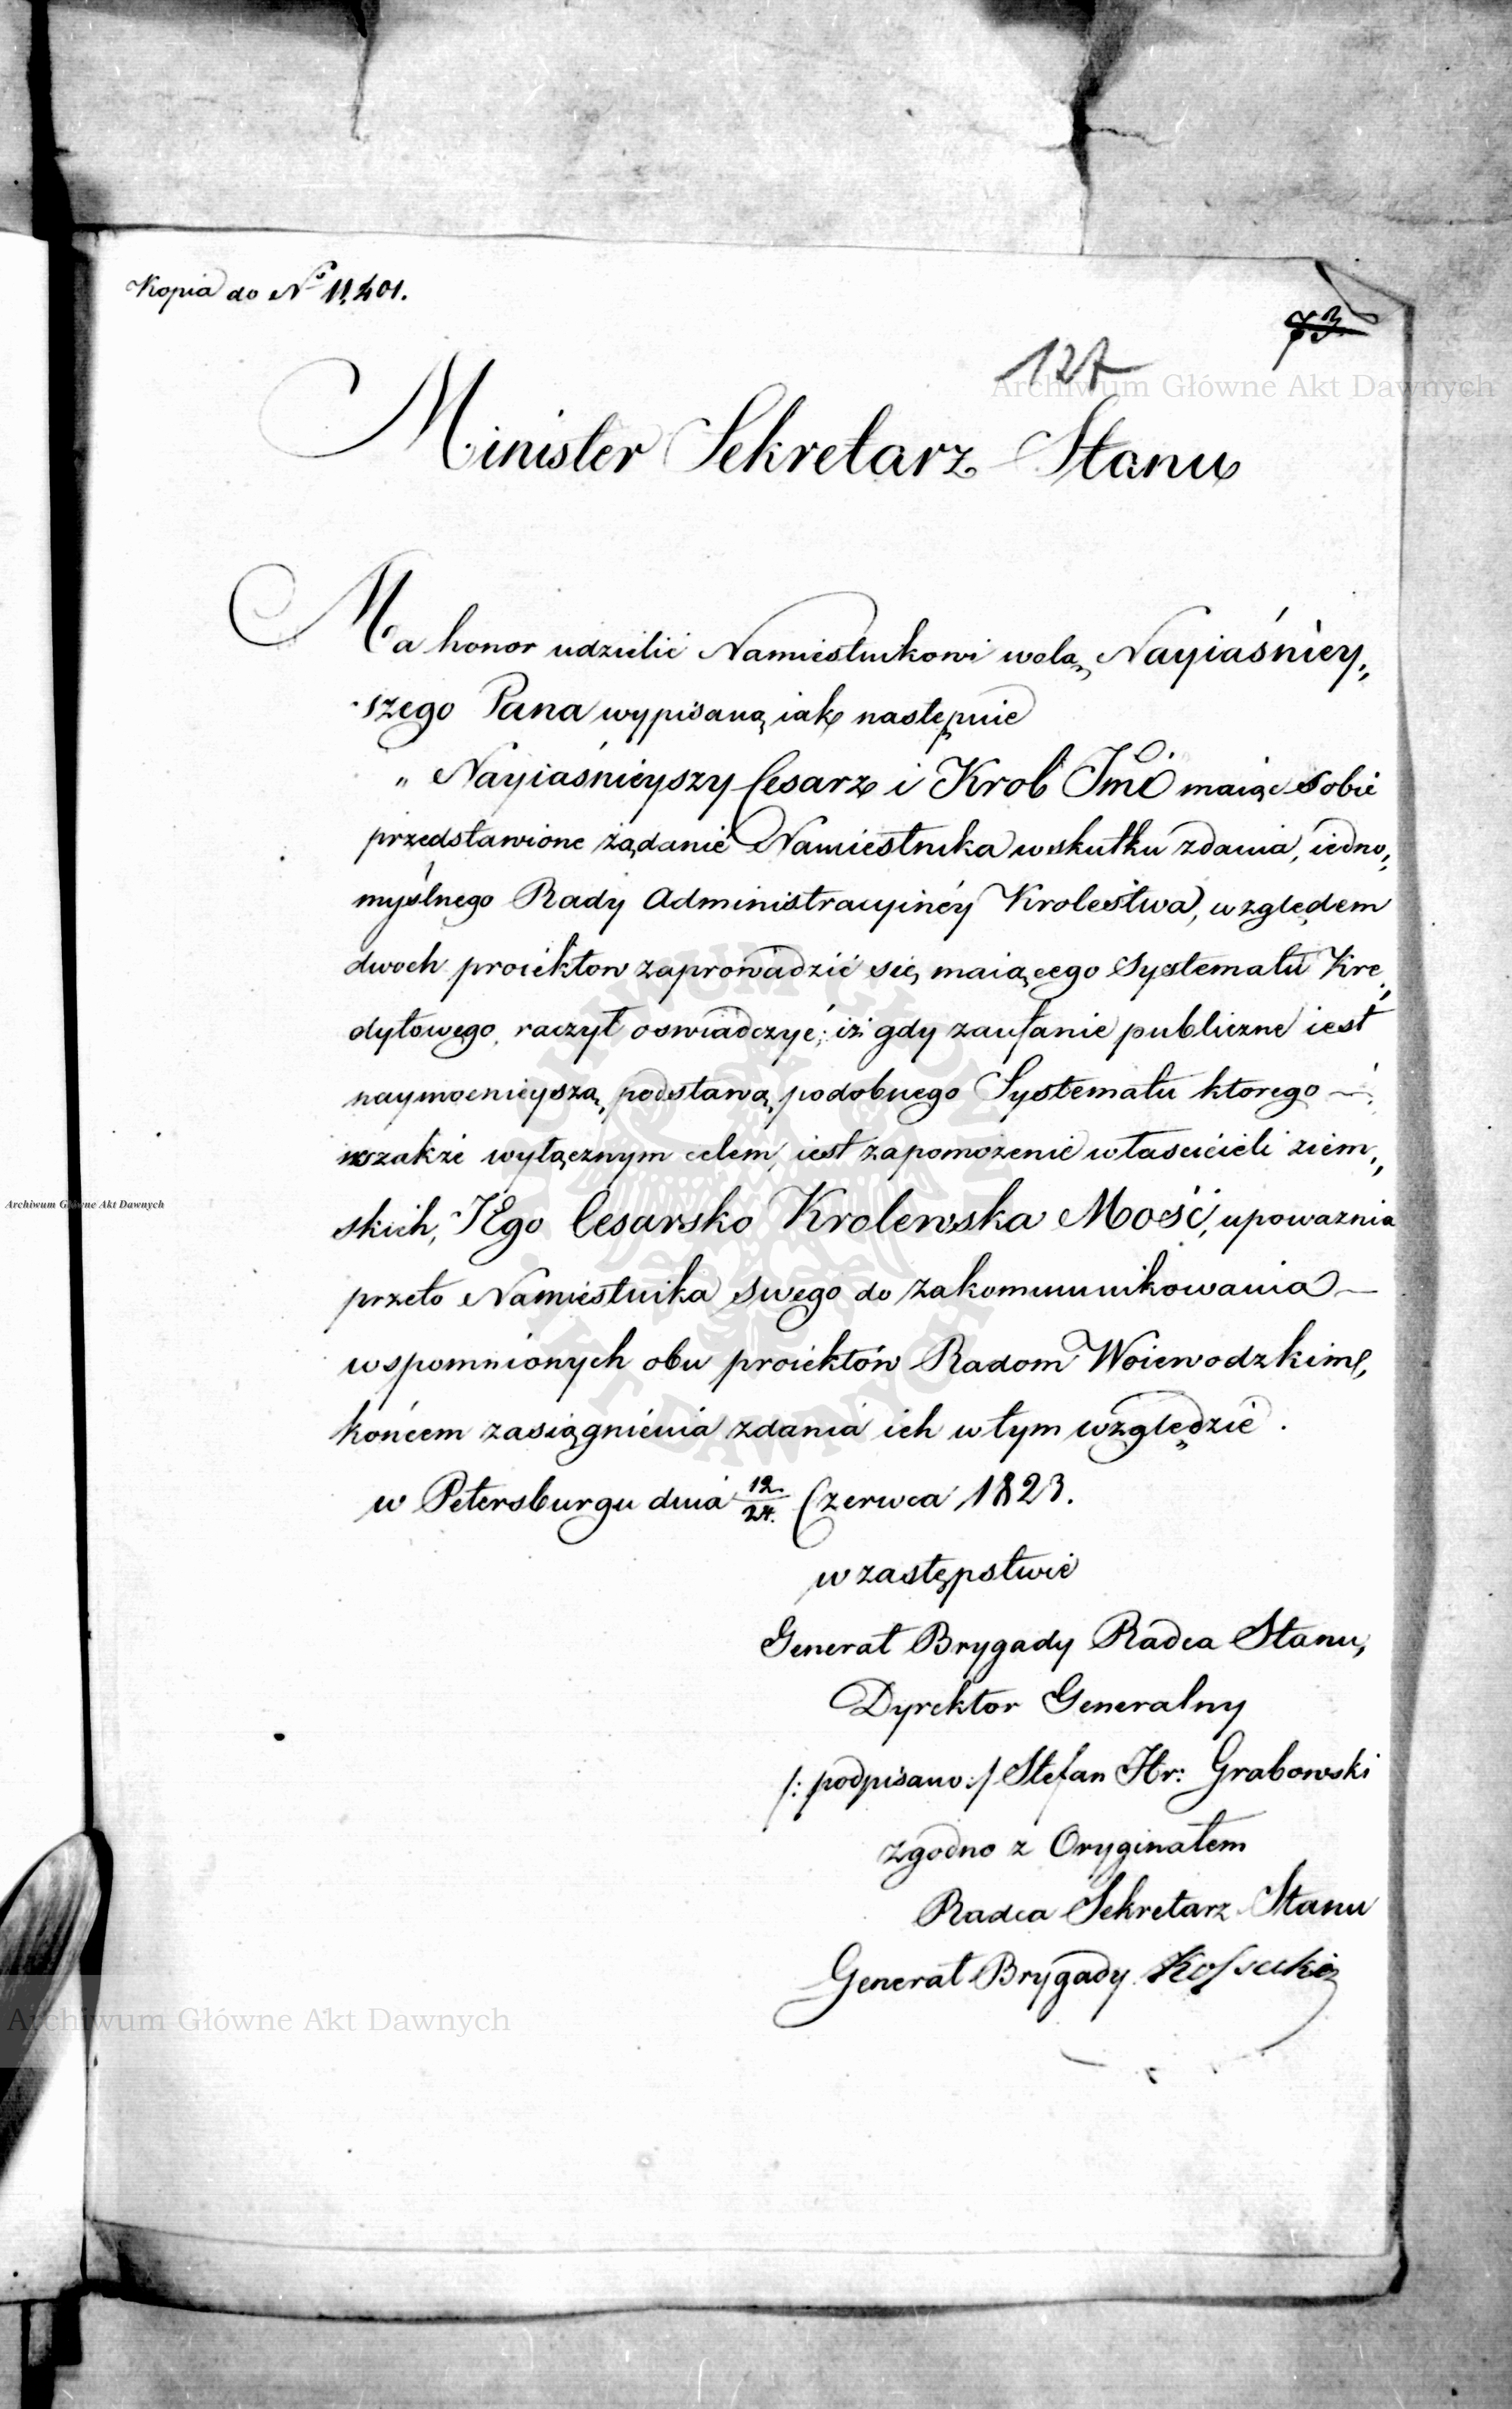 Kopia do No 11,401.
73
127
Minister Sekretarz Stanu
Ma honor udzielić Namiestnikowi wolą Nayiaśniey„
szego Pana wypisaną iak następuie
„ Nayiaśnieyszy Cesarz i Krol Jmć maiąc sobie
przedstawione żądanie Namiestnika wskutku zdania, iedno„
myślnego Rady Administracyinéy Krolestwa, względem
dwoch proiektow zaprowadzić się maiącego Systematu Kre„
dytowego, raczył oswiadczyć; iż gdy zaufanie publiczne iest
naymocnieyszą podstawą podobnego Systematu ktorego —
wszakże wyłącznym celem, iest zapomożenie włascicieli ziem„
skich, JEgo Cesarsko Krolewska Mość, upoważnia
przeto Namiestnika swego do zakommunikowania —
wspomnionych obu proiektów Radom Woiewodzkim,
końcem zasiągnienia zdania ich w tym względzie.
w Petersburgu dnia 12./24. Czerwca 1823.
w zastępstwie
Generał Brygady Radca Stanu,
Dyrektor Generalny
/: podpisano :/ Stefan Hr: Grabowski
zgodno z Oryginałem
Radca Sekretarz Stanu
Generał Brygady Kossecki
Archiwum Główne Akt Dawnych
Archiwum Główne Akt Dawnych
Archiwum Główne Akt Dawnych
ARCHIWUM GŁÓWNE AKT DAWNYCH